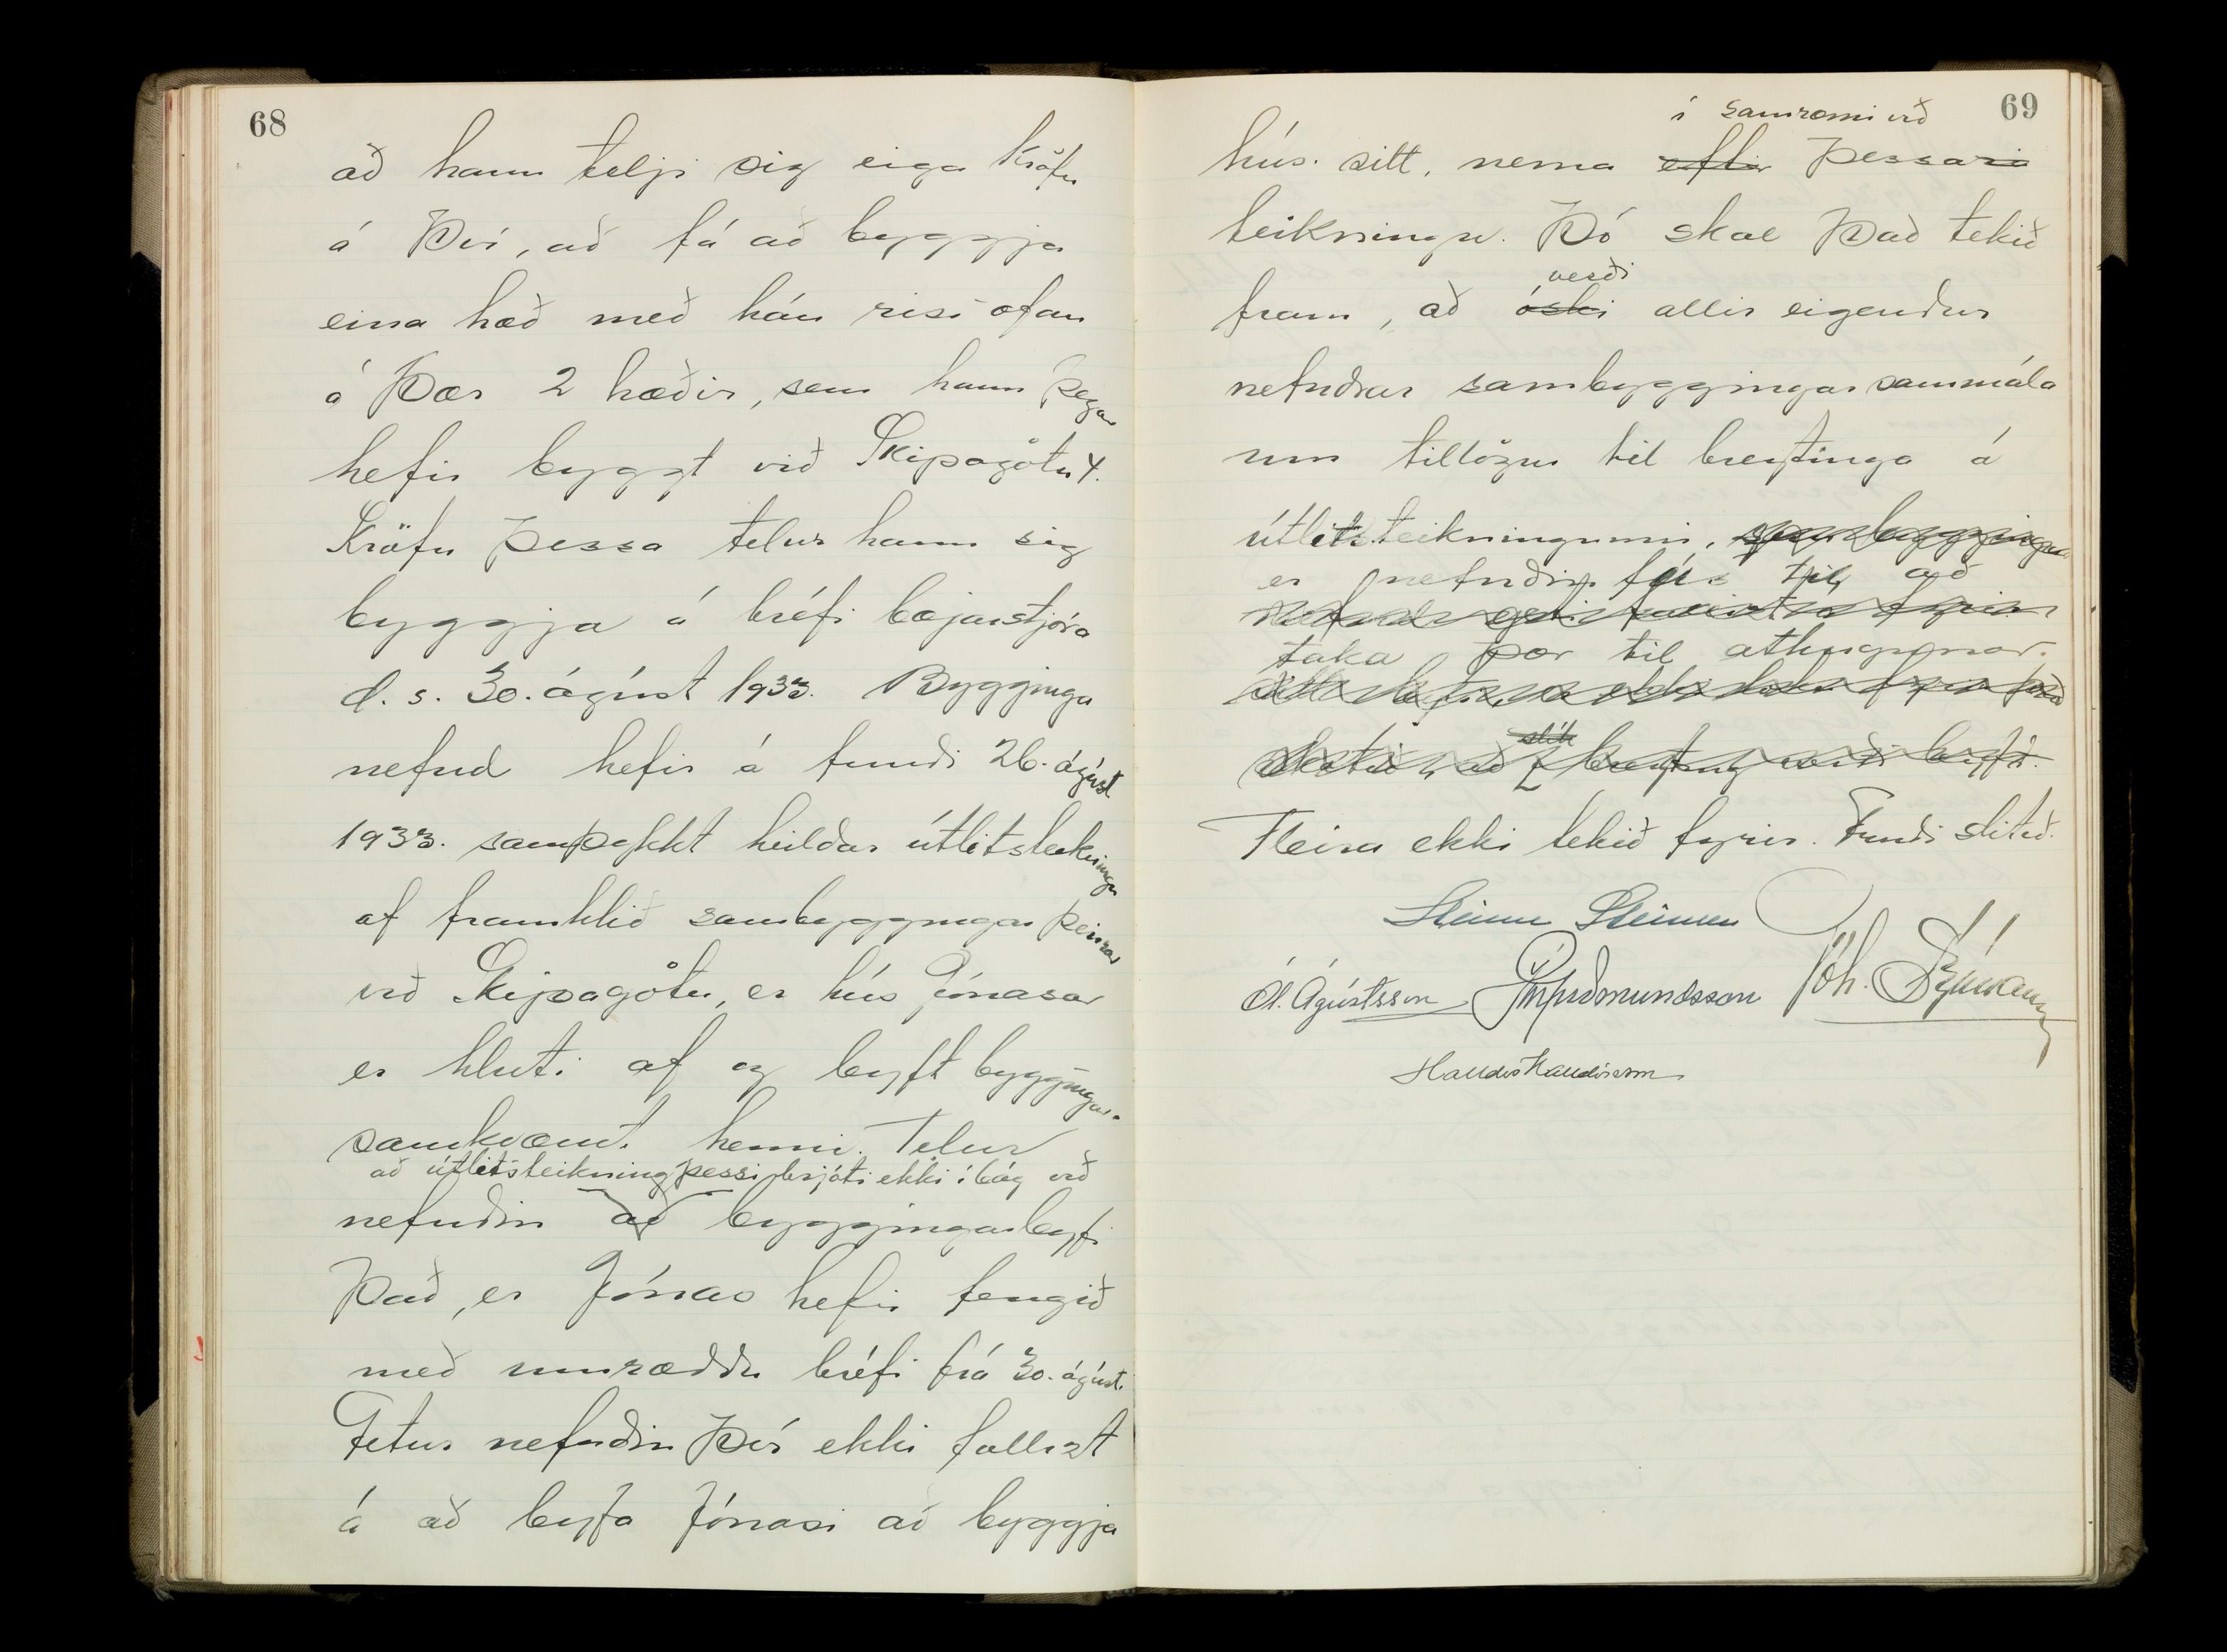 68
að hann telji sig eiga kröfu
á því, að fá að byggja
eina hæð með háu risi ofan
á þær 2 hæðir, sem hann þegar
hefir byggt við Skipagötu 4.
Kröfu þessa telur hann sig
byggja á bréfi bæjarstjóra
d. s. 30. ágúst 1933. Bygginga
nefnd hefir á fundi 26. ágúst
1933. samþykkt heildar útlitsteikningu
af framhlið sambyggingar þeirrar
við Skipagötu, er hús Jónasar
er hluti af og leyft byggingar
samkvæmt henni. Telur
að útlitsteikning þessi brjóti ekki í bág við
nefndin að byggingarleyfi
það, er Jónas hefir fengið
með umræddu bréfi frá 30. ágúst.
Getur nefndin því ekki fallizt
á að leyfa Jónasi að byggja
69
í samræmi við
hús sitt, nema eftir þessari
teikningu. Þó skal það tekið
verði
fram, að óski allir eigendur
nefndrar sambyggingar sammála
um tillögur til breytinga á
útlitsteikningunni, sambyggingu
er nefndin fús til að
taka þær til athugunar.
slík
að breyting verði leyfð.
Fleira ekki tekið fyrir. Fundi slitið.
Steinn Steinsen
Ól. Ágústsson Guðmundsson Jóh.
Halldór Halldórsson